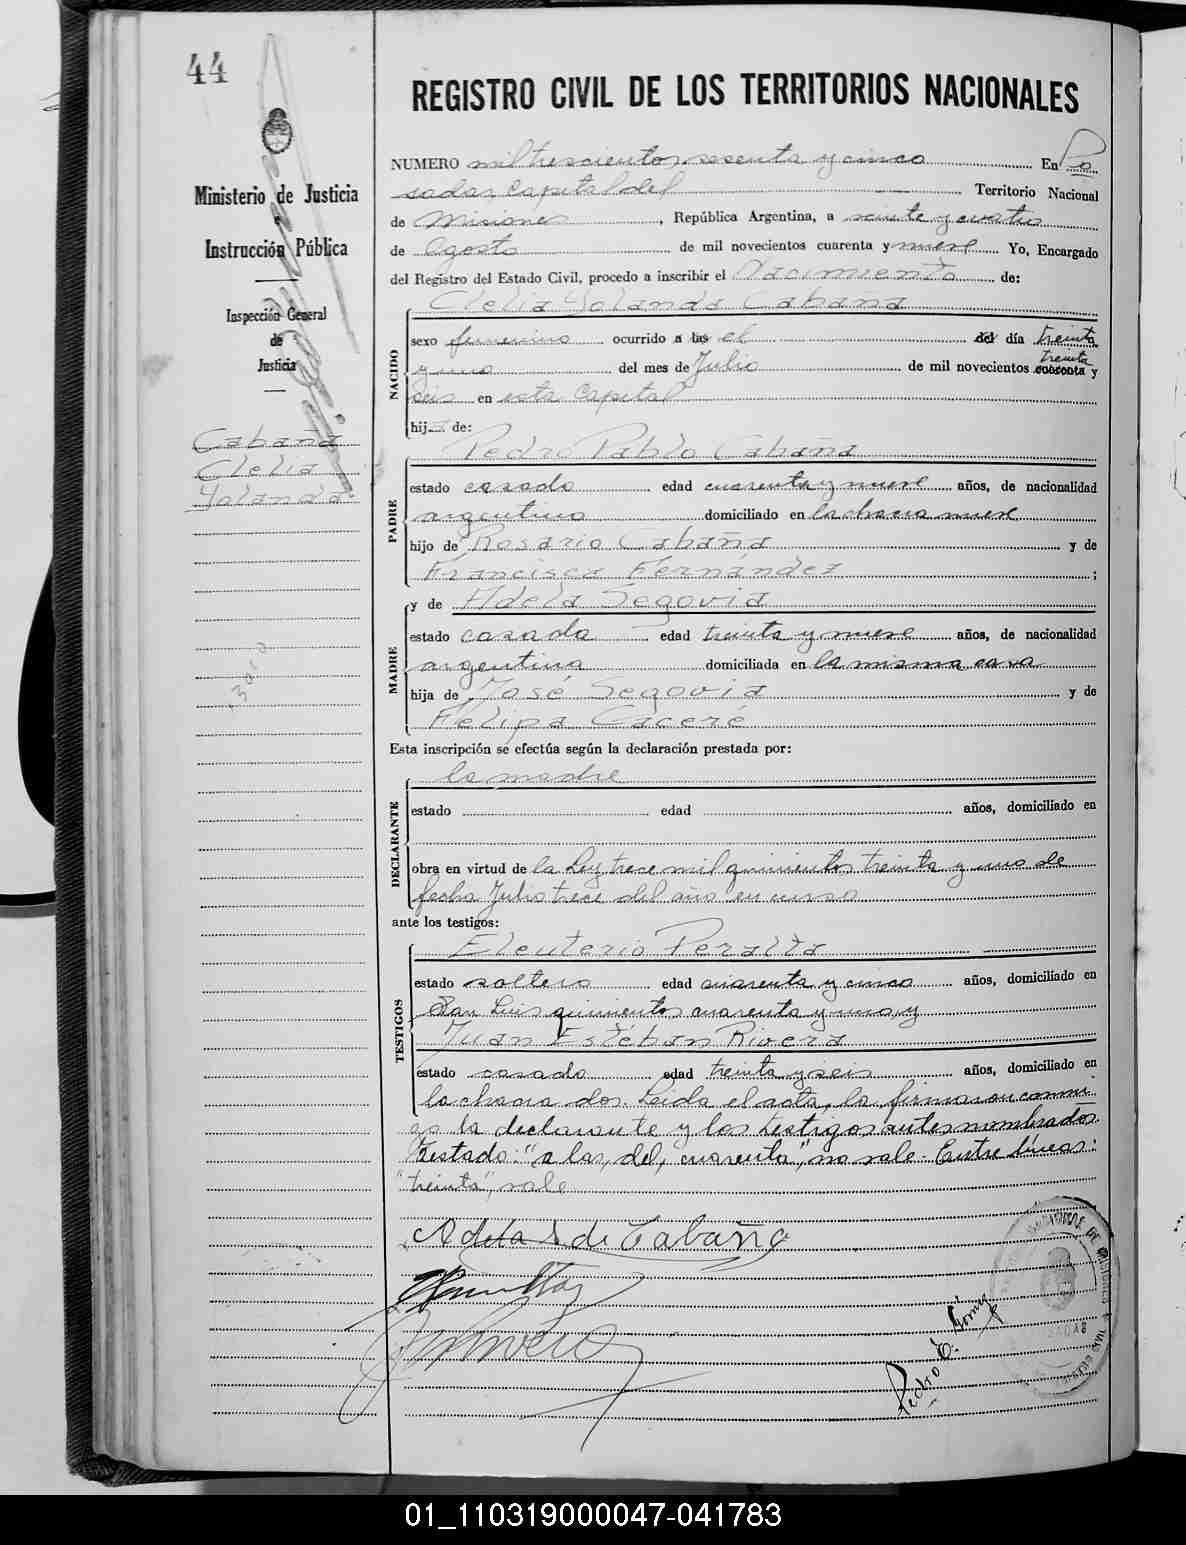 44
Ministerio de Justicia
e
Instrucción Pública
Inspección General
de
Justicia
Cabaña
Clelia
Yolanda
REGISTRO CIVIL DE LOS TERRITORIOS NACIONALES
NUMERO mil trescientos sesenta y cinco En Po
sadas, Capital del Territorio Nacional
de Misiones, República Argentina, a veinte y cuatro
de Agosto de mil novecientos cuarenta y nueve Yo, Encargado
del Registro del Estado Civil, procedo a inscribir el Nacimiento de:
Clelia Yolanda Cabaña
NACIDO
sexo femenino ocurrido a las el del día treinta
y uno del mes de Julio de mil novecientos cuarenta treinta y
seis en esta Capital
hij de:
Pedro Pablo Cabaña
PADRE
estado casado edad cuarenta y nueve años, de nacionalidad
argentino domiciliado en la chacra nueve
hijo de Rosario Cabaña y de
Francisca Fernández ;
y de Adela Segovia
MADRE
estado casada edad treinta y nueve años, de nacionalidad
argentina domiciliada en la misma casa
hija de José Segovia y de
Felipa Caceré
Esta inscripción se efectúa según la declaración prestada por:
la madre
DECLARANTE
estado edad años, domiciliado en
obra en virtud de la Ley trece mil quinientos treinta y uno de
fecha Julio trece del año en curso
ante los testigos:
Eleuterio Peralta
TESTIGOS
estado soltero edad cuarenta y cinco años, domiciliado en
San Luis quinientos cuarenta y uno, y
Juan Estéban Rivera
estado casado edad treinta y seis años, domiciliado en
la chacra dos. Leida el acta, la firmaron conmi
go la declarante y los testigos antes nombrados.
Testado: "a las, del, cuarenta," no vale. Entre líneas:
"treinta", vale
Adela S de Cabaña
Pedro E. Gómez
01_110319000047-041783